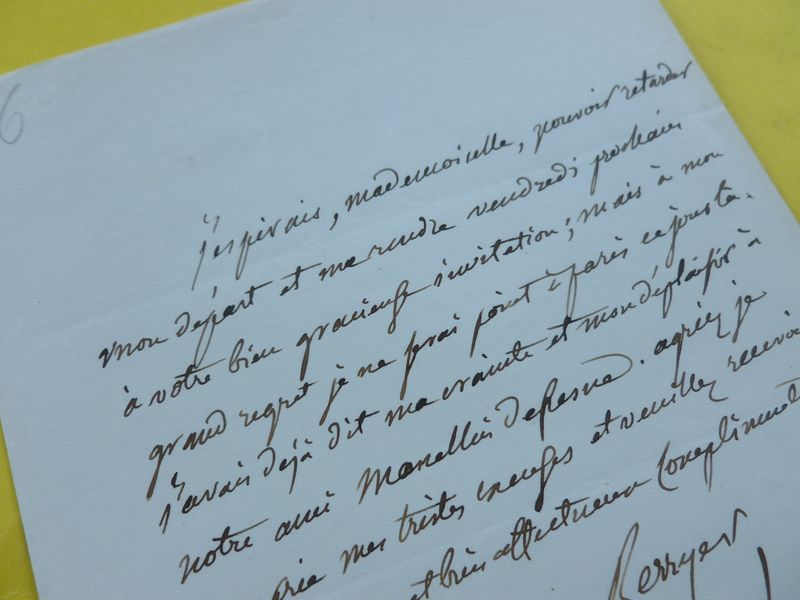 6
j'espérais, mademoiselle, pouvoir retarder
mon départ et me rendre vendredi prochain
à votre bien gracieuse invitation; mais à mon
grand regret je ne serai point à paris ce jour là.
j'avais déjà dit ma crainte et mon déplaisir à
notre ami de fresne. agréez je
mes tristes excuses et veuillez recevoir
et bien affectueux compliments
Berryer